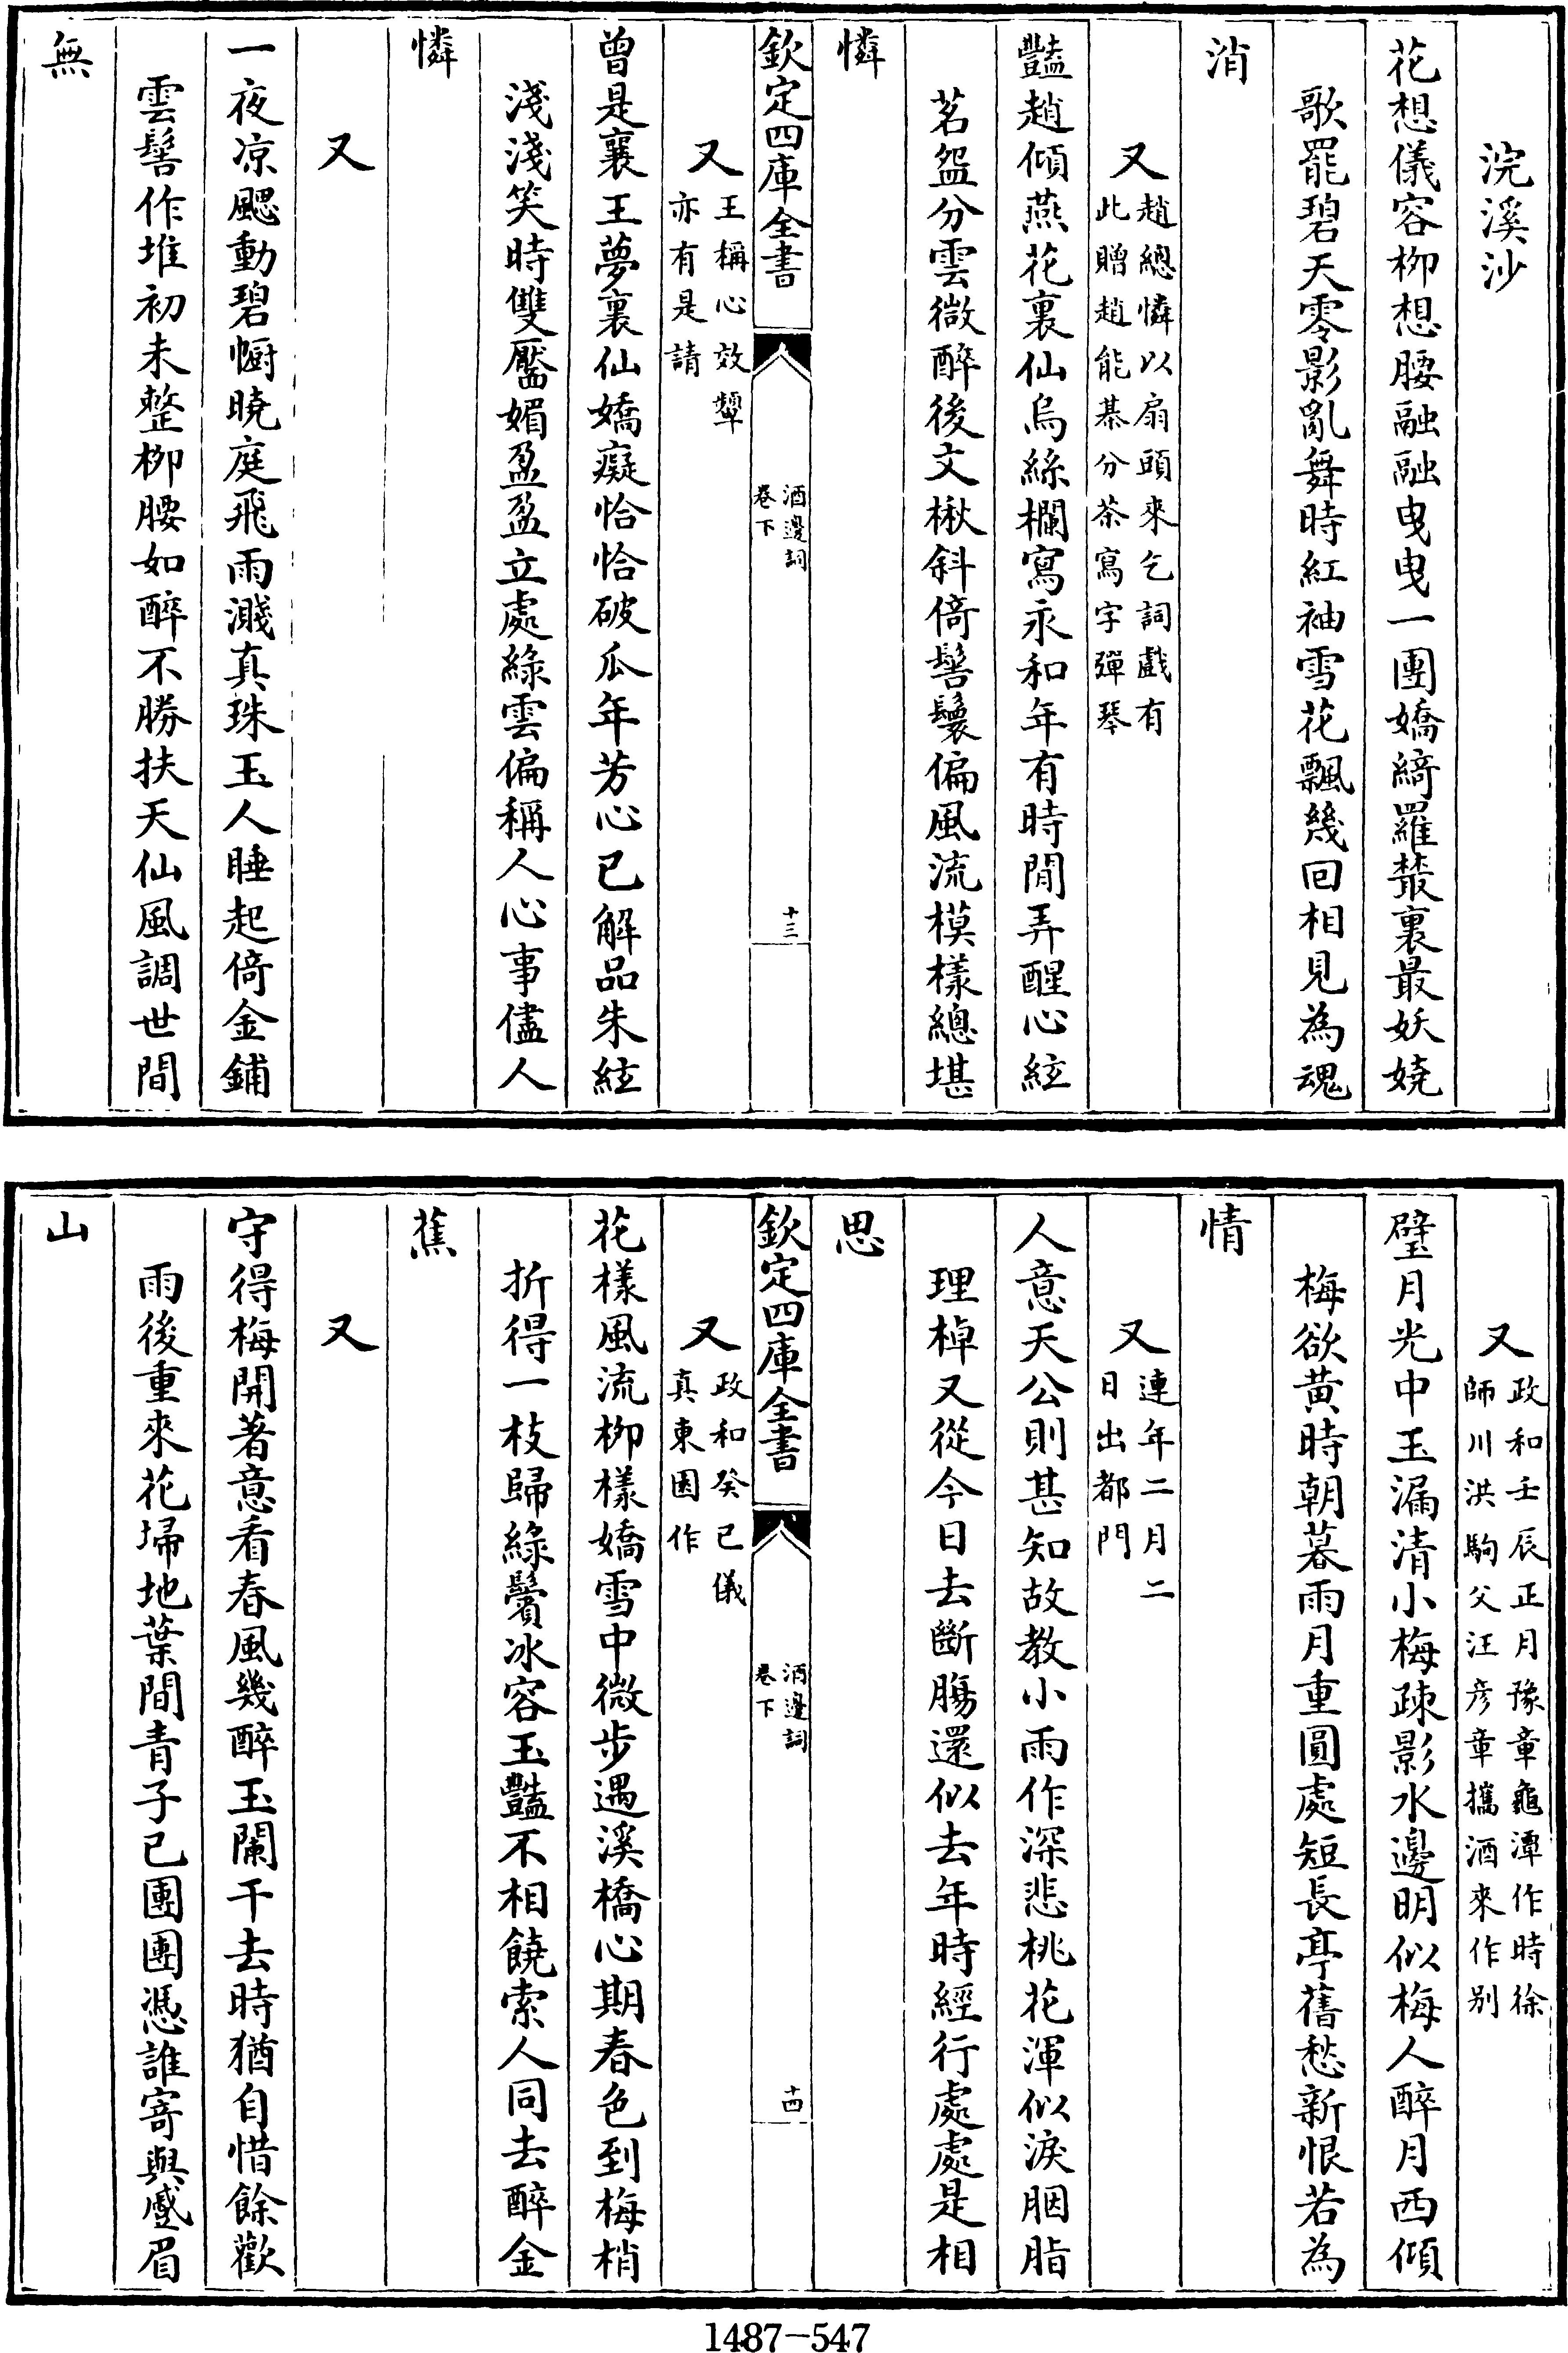 浣溪沙
花想儀容栁想腰融融曳曳一團嬌綺羅叢裏最妖嬈
歌罷碧天零影亂舞時紅袖雪花飄幾回相見為魂
消
又趙總憐以扇頭來乞詞戲有
此贈趙能棊分茶寫字彈琴
豔趙傾燕花裏仙烏絲欄寫永和年有時閒弄醒心絃
茗盌分雲微醉後文楸斜倚髻鬟偏風流模樣總堪
憐
欽定四庫全書
酒邊詞
卷下
十三
又王稱心效顰
亦有是請
曾是襄王夢裏仙嬌癡恰恰破瓜年芳心已解品朱絃
淺淺笑時雙靨媚盈盈立處綠雲偏稱人心事儘人
憐
又
一夜凉颸動碧㡡曉庭飛雨濺真珠玉人睡起倚金鋪
雲髻作堆初未整栁腰如醉不勝扶天仙風調世間
無
又政和壬辰正月豫章龜潭作時徐
師川洪駒父汪彦章攜酒來作别
璧月光中玉漏清小梅疎影水邊明似梅人醉月西傾
梅欲黄時朝暮雨月重圓處短長亭舊愁新恨若為
情
又連年二月二
日出都門
人意天公則甚知故教小雨作深悲桃花渾似淚胭脂
理棹又從今日去斷腸還似去年時經行處處是相
思
欽定四庫全書
酒邊詞
卷下
十四
又政和癸已儀
真東園作
花樣風流栁樣嬌雪中微步過溪橋心期春色到梅梢
折得一枝歸綠鬢冰容玉豔不相饒索人同去醉金
蕉
又
守得梅開著意看春風幾醉玉闌干去時猶自惜餘歡
雨後重來花埽地葉間青子已團團憑誰寄與蹙眉
山
1487-547